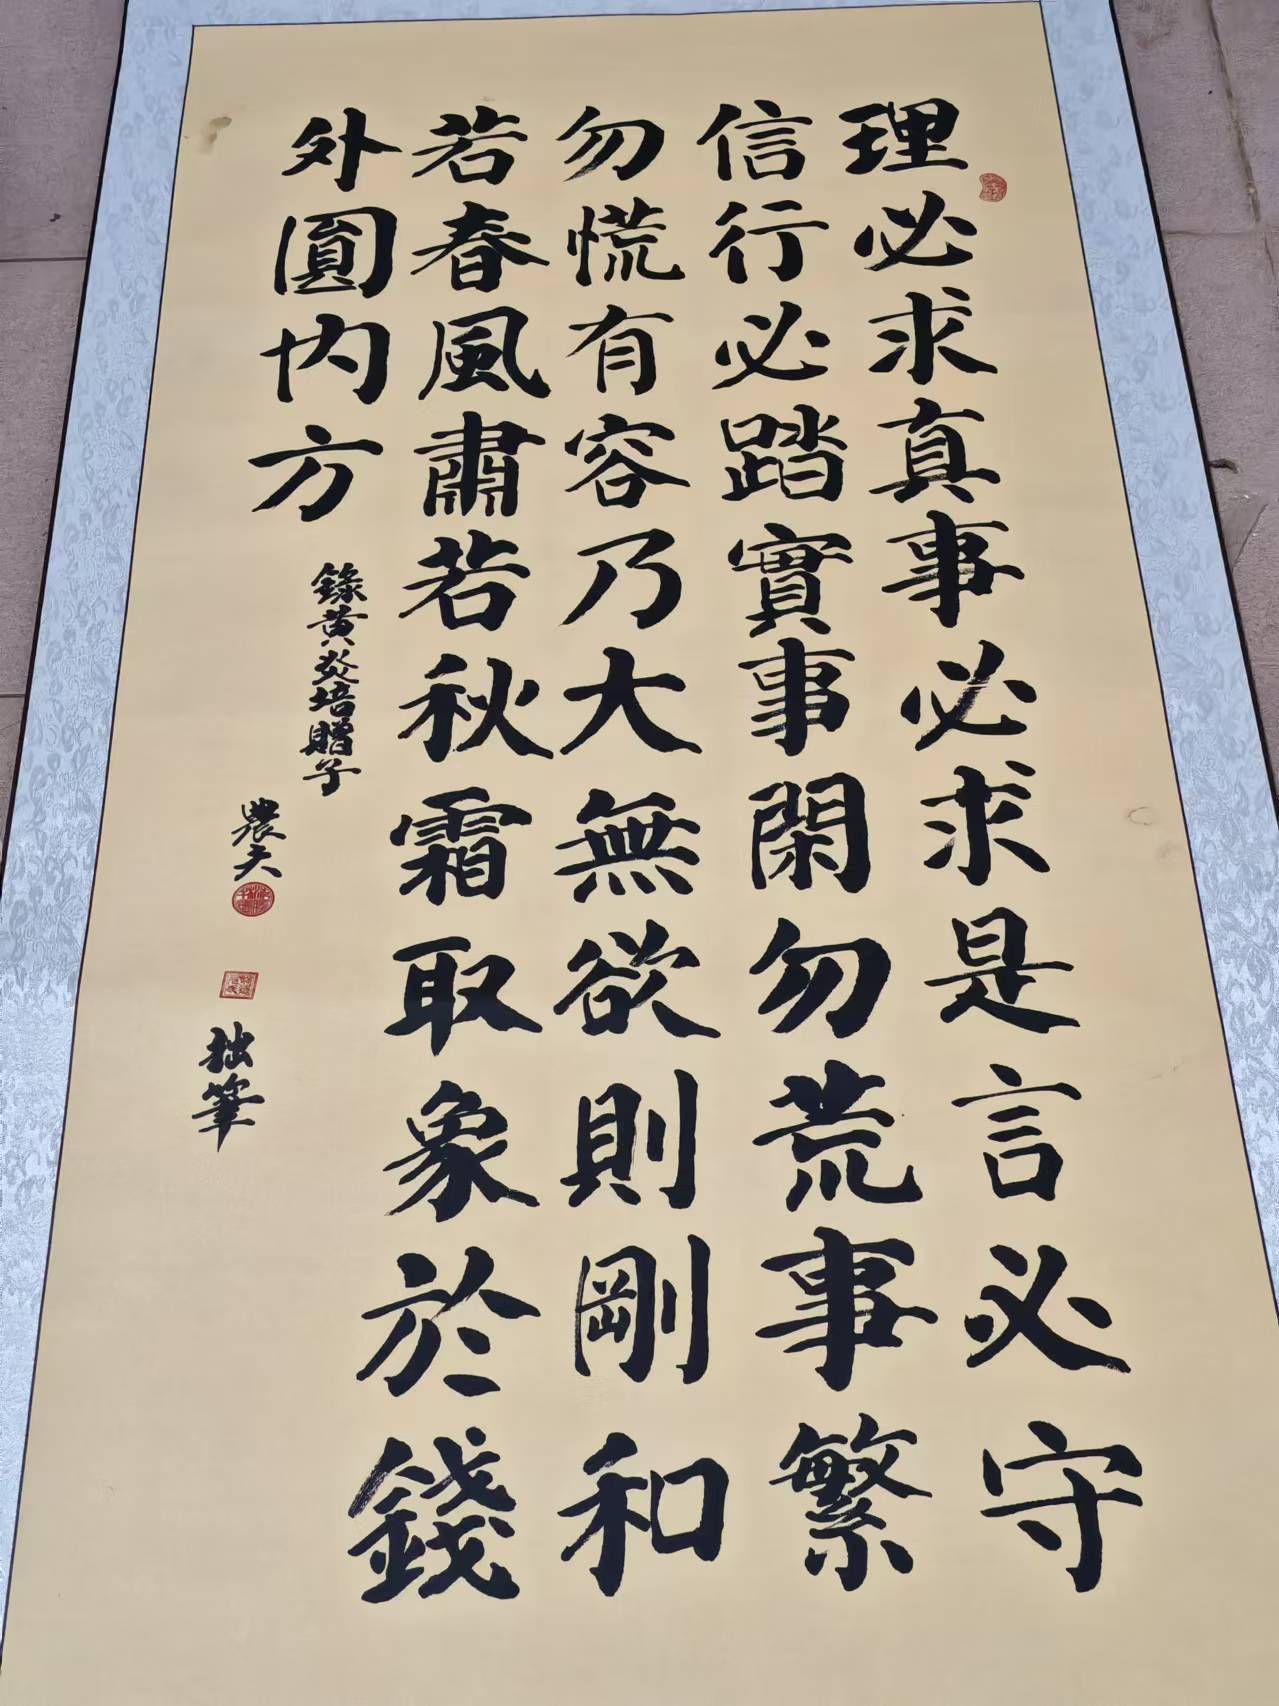 理必求真事必求是言必守
信行必踏實事閑勿荒事繁
勿慌有容乃大無欲則剛和
若春風肅若秋霜取象於錢
外圓内方
錄黄炎培贈子
農夫
拙筆